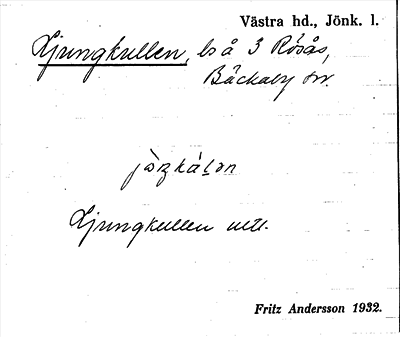 Västra hd., Jönk. l.
Ljungkullen, ls å 3 Rösås,
Bäckaby sn.
Ljungkullen utl.
Fritz Andersson 1932.